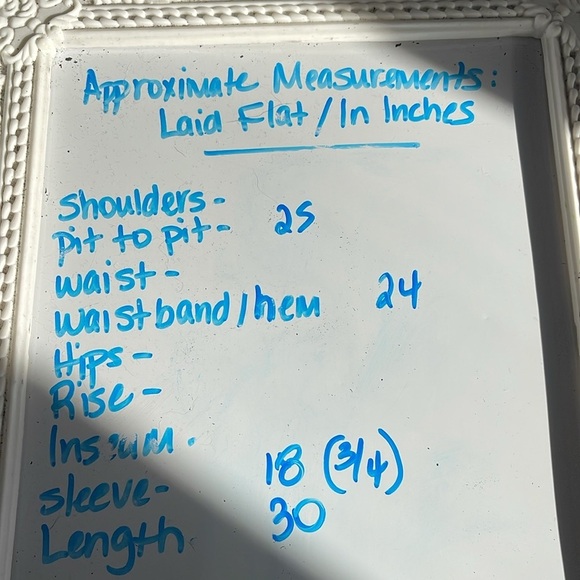 Approximate Measurements:
Laid Flat/In Inches
Shoulders-
pit to pit- 25
waist-
waistband/hem 24
Hips-
Rise-
Inseum.
sleeve- 18 (3/4)
Length 30